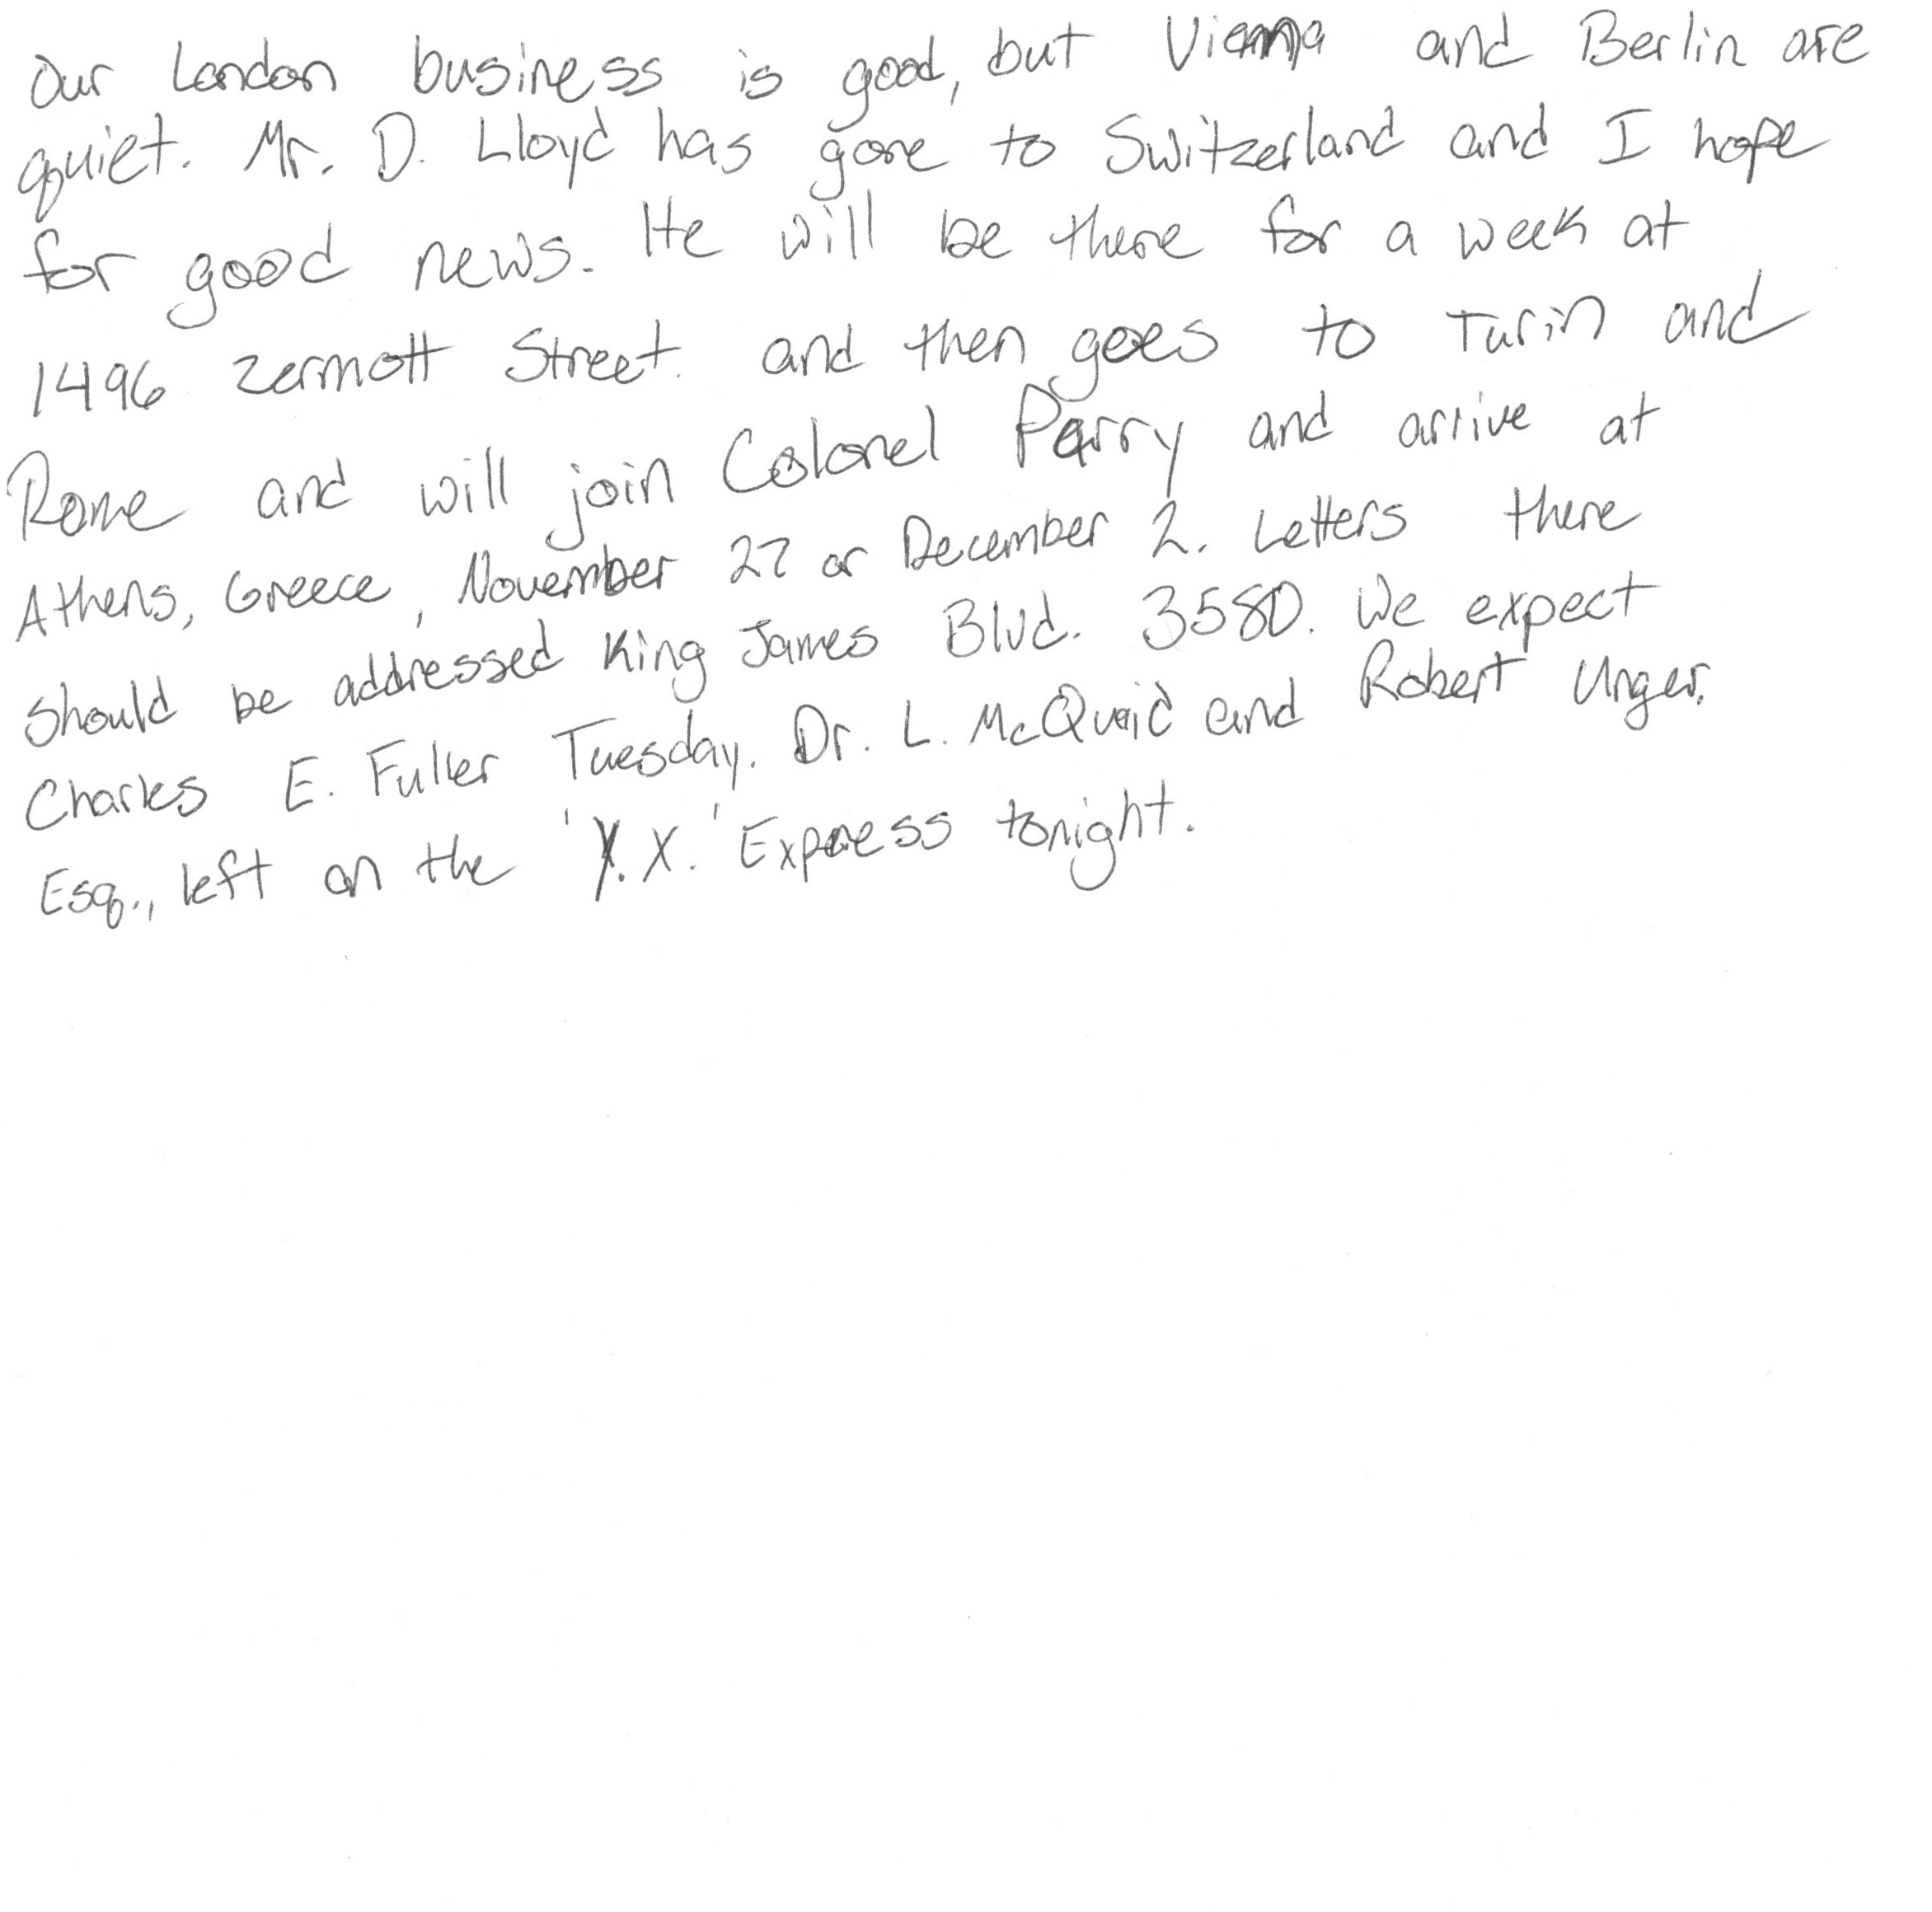 Our London business is good, but Vienna and Berlin are
quiet. Mr. D. Lloyd has gone to Switzerland and I hope
for good news. He will be there for a week at
1496 Zermott Street. and then goes to Turin and
Rome and will join Colonel Parry and arrive at
Athens, Greece, November 27 or December 2. Letters there
should be addressed King James Blvd. 3580. We expect
Charles E. Fuller Tuesday. Dr. L. McQuaid and Robert Unger.
Esq., left on the 'Y.X.' Express tonight.